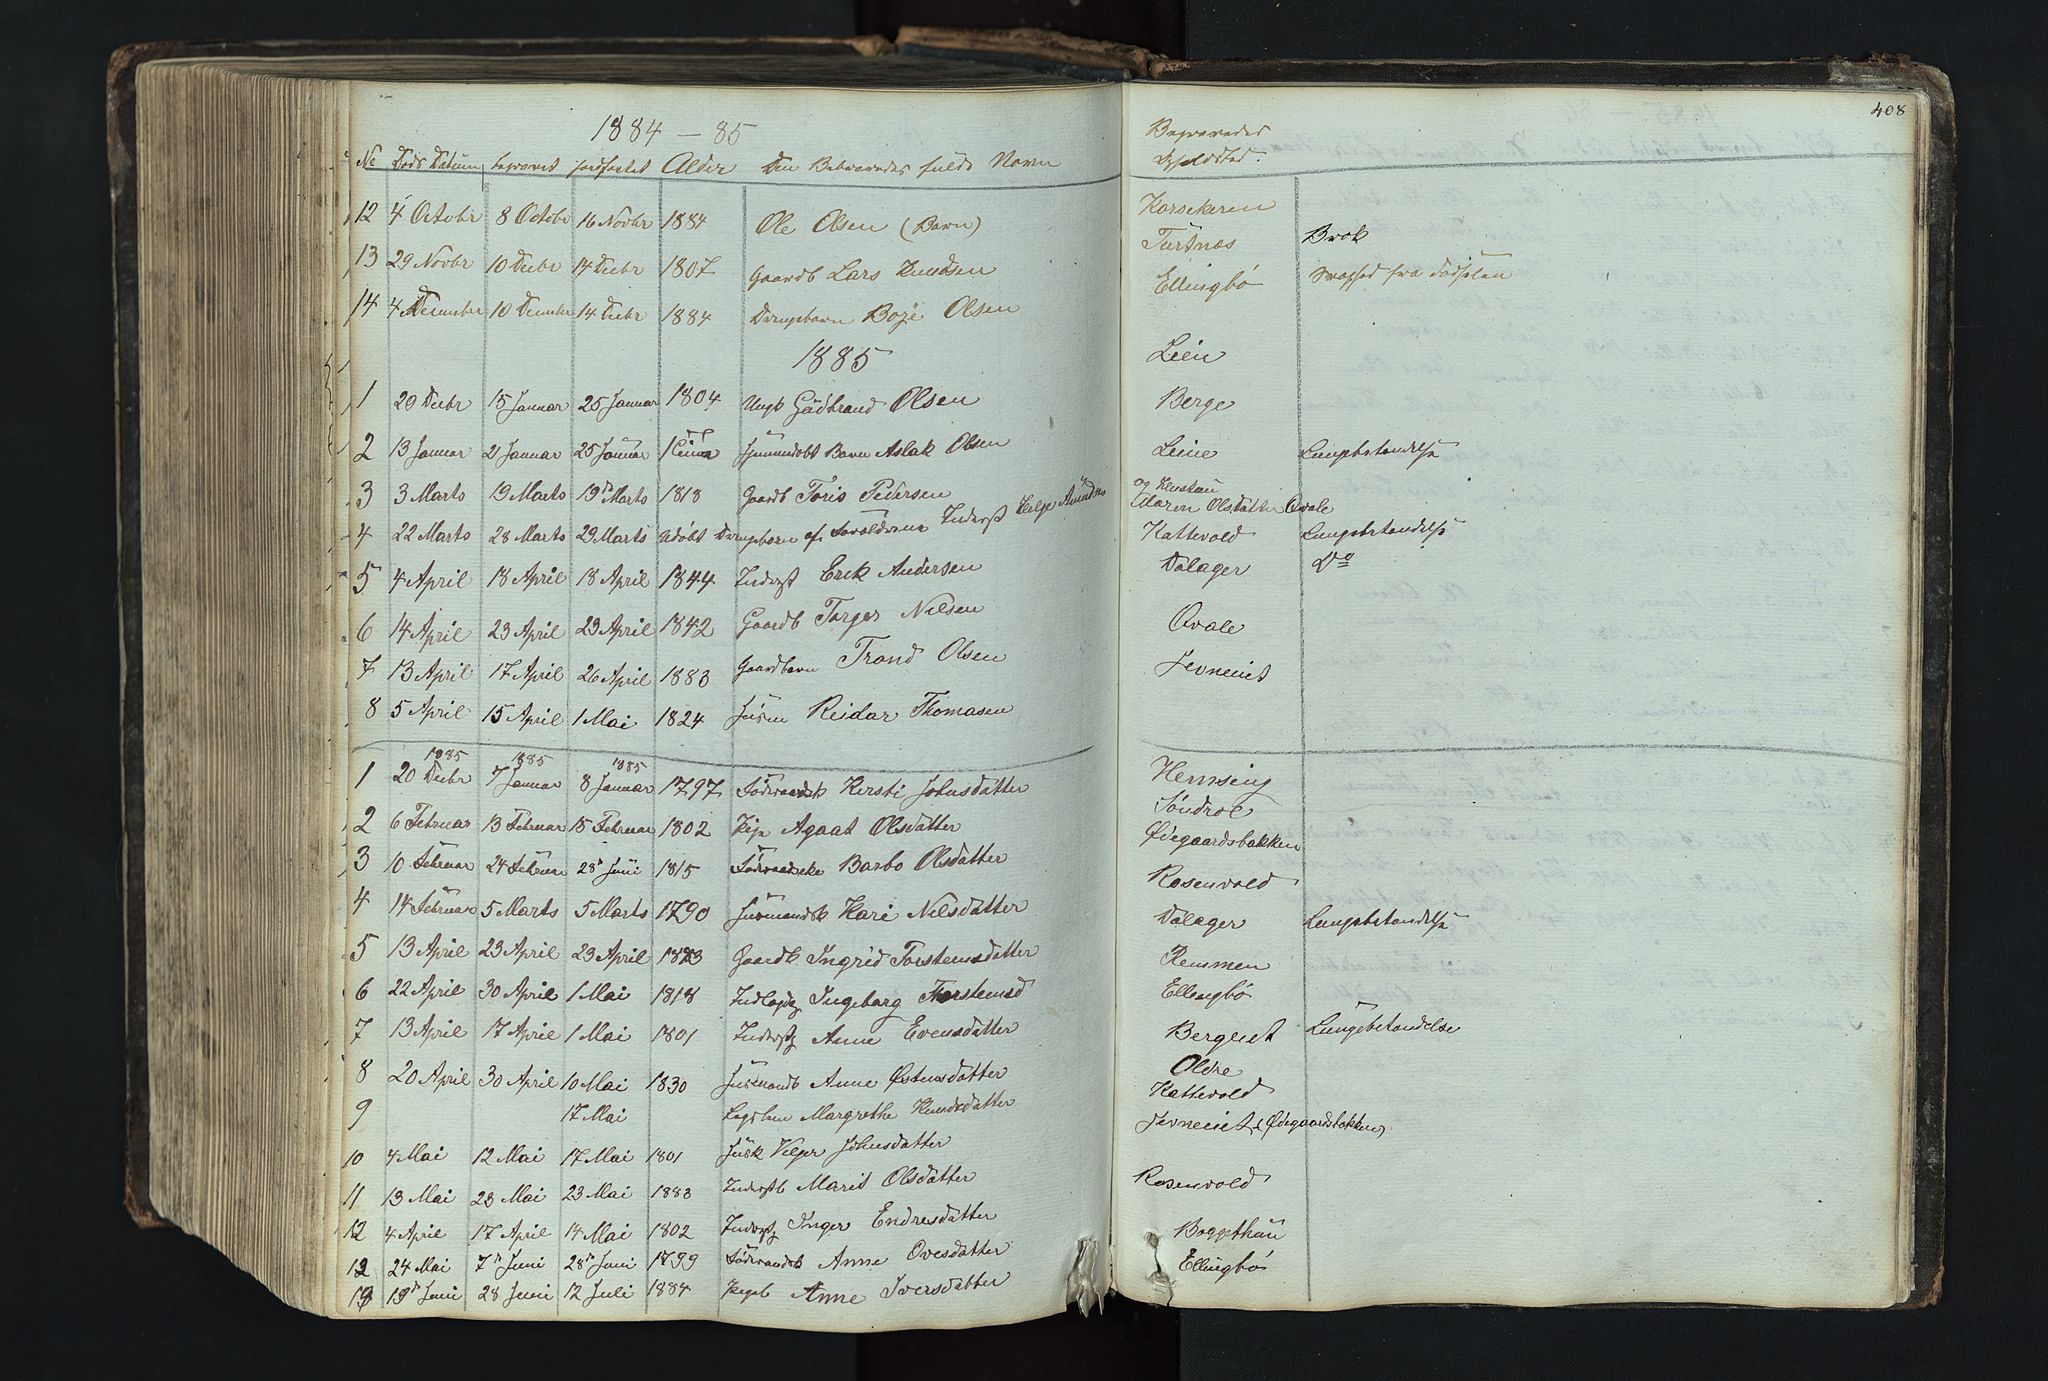 408
1884 – 85
No Døds Datum begravet jordfæstet Alder Den Begravedes fulde Navn
12 4 Octobr 8 Octobr 16 Novbr 1884 Ole Olsen (Barn)
13 29 Novbr 10 Decbr 14 Decbr 1807 Gaardb Lars Knudsen
14 4 December 10 December 14 Decbr 1884 Drengebarn Boje Olsen
1885
1 29 Decbr 15 Januar 25 Januar 1804 Ungk Gudbrand Olsen
2 13 Januar 21 Januar 25 Januar Barn Aslak Olsen
3 3 Marts 19 Marts 19 Marts 1818 Gaardb Toris Pedersen
4 22 Marts 28 Marts 29 Marts Udøbt Drengebarn af Forældrene Inderst Helge
5 4 April 18 April 18 April 1844 Inderst Erik Andersen
6 14 April 23 April 23 April 1842 Gaardb Torger Nilsen
7 13 April 17 April 26 April 1883 Gaardbarn Trond Olsen
8 5 April 15 April 1 Mai 1824 Reidar Thomasen
1885 1885 1885
1 20 Decbr 7 Januar 8 Januar 1797 Føderaadsk Kersti Johnsdatter
2 6 Februar 13 Februar 15 Februar 1802 Agaat Olsdatter
3 10 Februar 24 Februar 28 Juni 1815 Barbo Olsdatter
4 14 Februar 5 Marts 5 Marts 1790 Husmandsk Kari Nilsdatter
5 13 April 23 April 23 April Gaardb Ingrid Torstensdatter
6 22 April 30 April 1 Mai 1818 Ingeborg Thorstensd
7 13 April 17 April 1 Mai 1801 Anne Evensdatter
8 20 April 30 April 10 Mai 1830 Anne Østensdatter
9 17 Mai Margrethe Knudsdatter
10 4 Mai 12 Mai 17 Mai 1801 Johnsdatter
11 13 Mai 23 Mai 23 Mai 1883 Marit Olsdatter
12 4 April 17 April 14 Mai 1802 Inger Endresdatter
24 Mai 7 Juni 28 Juni 1799 Føderaadsk Anne Ovesdatter
19 Juni 28 Juni 12 Juli 1884 Anne Iversdatter
Begravedes
Opholdsted.
Korsekeren
Turtnæs Brok
Ellingbø svaghed fra Fødselen
Leine
Berge
Leine Lungebetændelse
og Kvale
Maren Olsdatter
Kattevold Lungebetændelse
Dalager Do
Qvale
Jevneiet
Hermseng
Søndrol
Ødegaardsbakken
Rosenvold
Dalager Lungebetændelse
Remmen
Ellingbø
Bergeiet Lungebetændelse
Oldre
Kattevold
Jevneiet (Ødegaardsbakken)
Rosenvold
Boggethun
Ellingbø